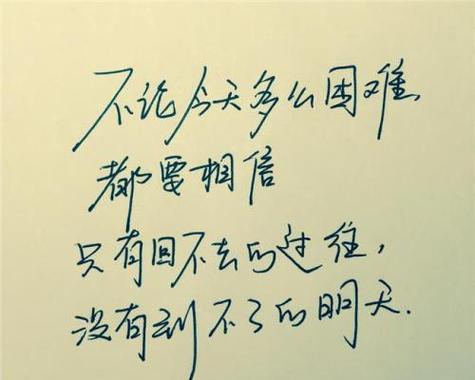 不论今天多么困难，
都要相信
只有回不去的过往，
没有到不了的明天.